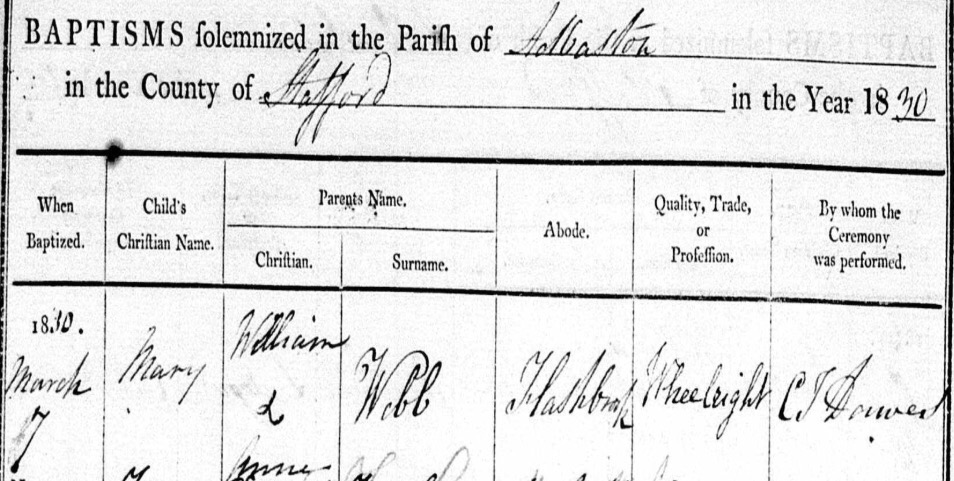 BAPTISMS ſolemnized in the Pariſh of Adbaston
in the County of Stafford in the Year 1830
When Baptized.
Child's Chriſtian Name.
Parents Name.
Chriſtian.
Surname.
Abode.
Quality, Trade, or Profeſſion.
By whom the Ceremony was performed.
1830.
March
17
Mary
William
&
Anne
Webb
Flashbrook
Wheelright